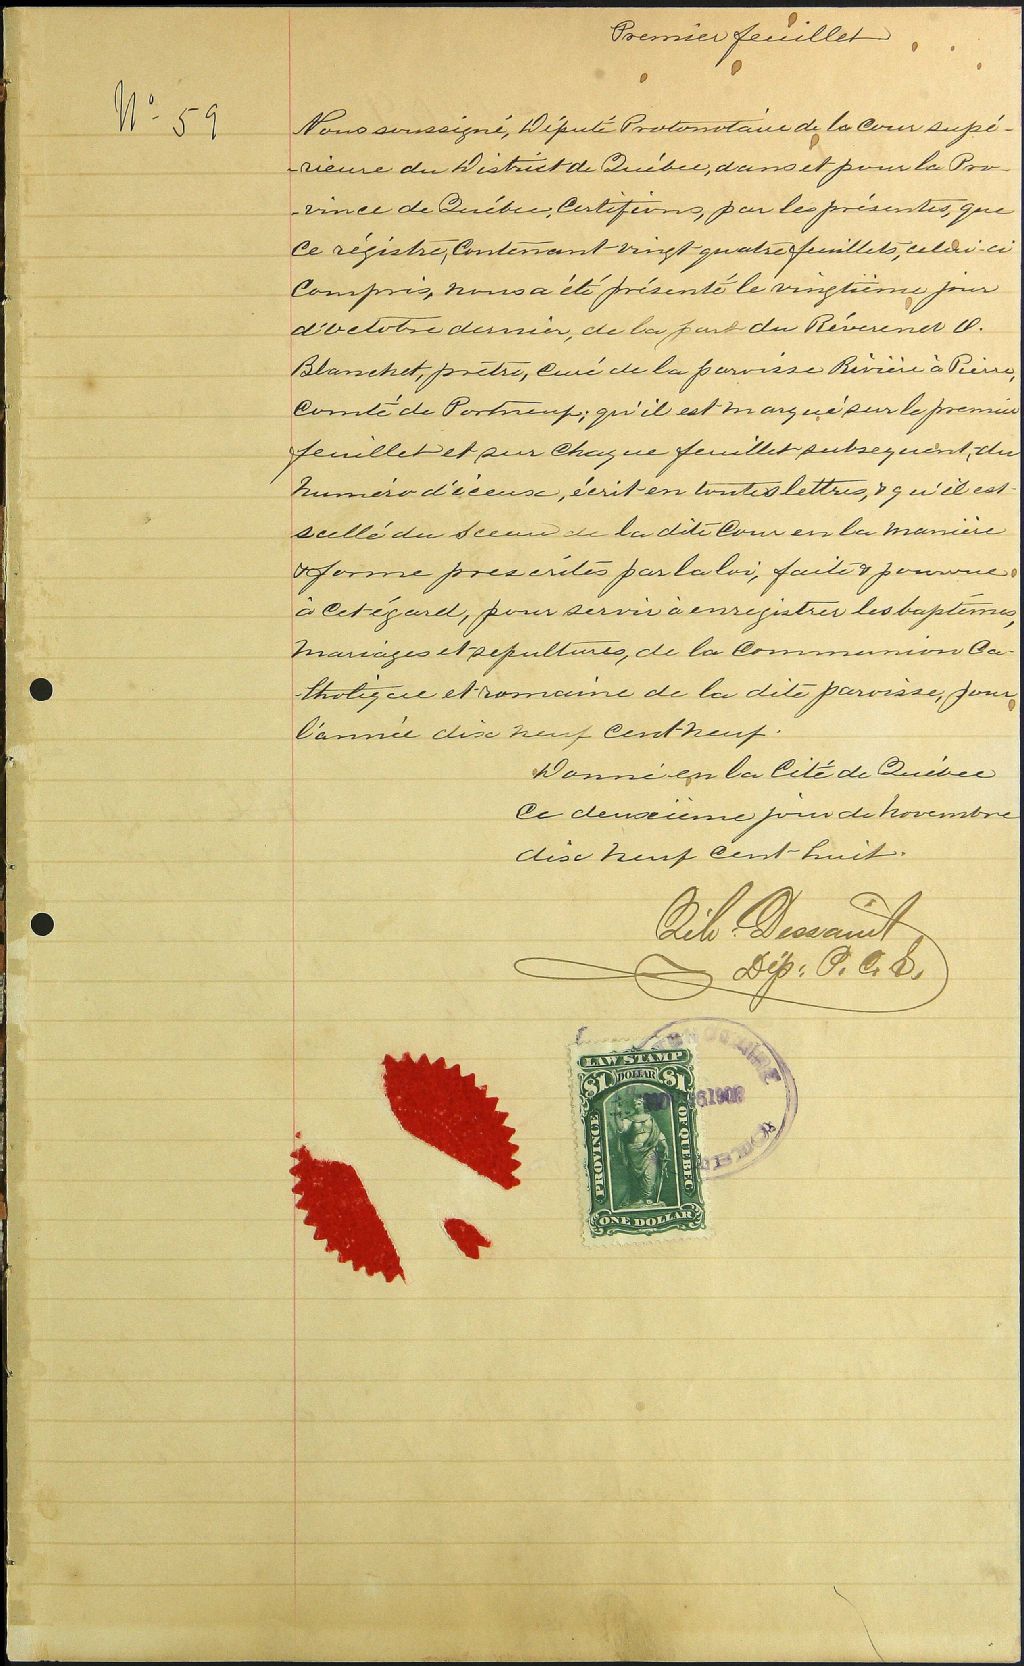 Premier feuillet
No. 59
Nous soussigné, Député Protonotaire de la Cour supé-
-rieure du District de Québec, dans et pour la Pro-
-vince de Québec, Certifions, par les présentes, que
ce régistre, Contenant vingt-quatre feuillets, celui-ci
Compris, nous a été présenté le vingtième jour
d'octobre dernier, de la part du Révérend O.
Blanchet, prêtre, curé de la paroisse Rivière à Pierre,
Comté de Portneuf; qu'il est marqué sur le premier
feuillet et sur chaque feuillet subsequent, du
numéro d'iceux, écrit en toutes lettres, & qu'il est
scellé du Sceau de la dite Cour en la manière
& forme prescrites par la loi, faite & pourvue
à cet égard, pour servir à enregistrer les baptêmes,
Mariages et sépultures, de la Communion Ca-
-tholique et romaine de la dite paroisse, pour
l'année dix neuf cent neuf.
Donné en la Cité de Québec
Ce deuxième jour de novembre
dix neuf cent huit.
Dessault
Dép: P. C. S.
LAW STAMP
$1 DOLLAR $1
PROVINCE OF QUEBEC
ONE DOLLAR